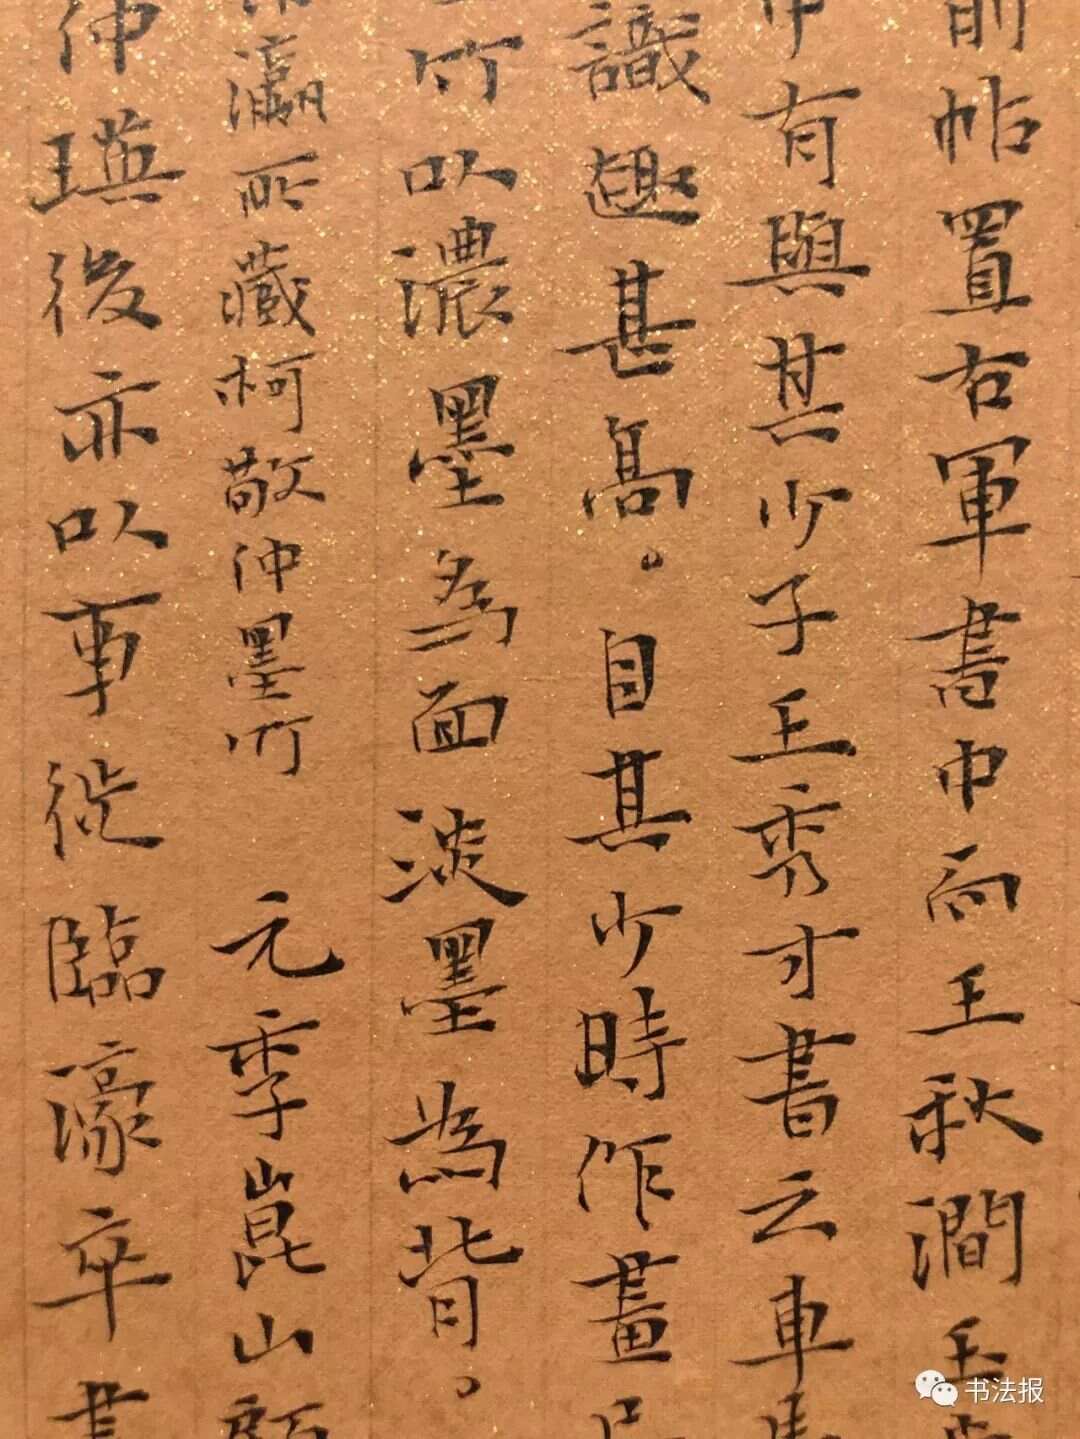 前帖置右軍書中而王秋澗玉
中有與其少子王秀才書云車馬
識趣甚高。自其少時作畫
竹以濃墨為面淡墨為背。
瀛所藏柯敬仲墨竹 元季崑山顧
仲瑛後亦以事徙臨濠卒
书法报